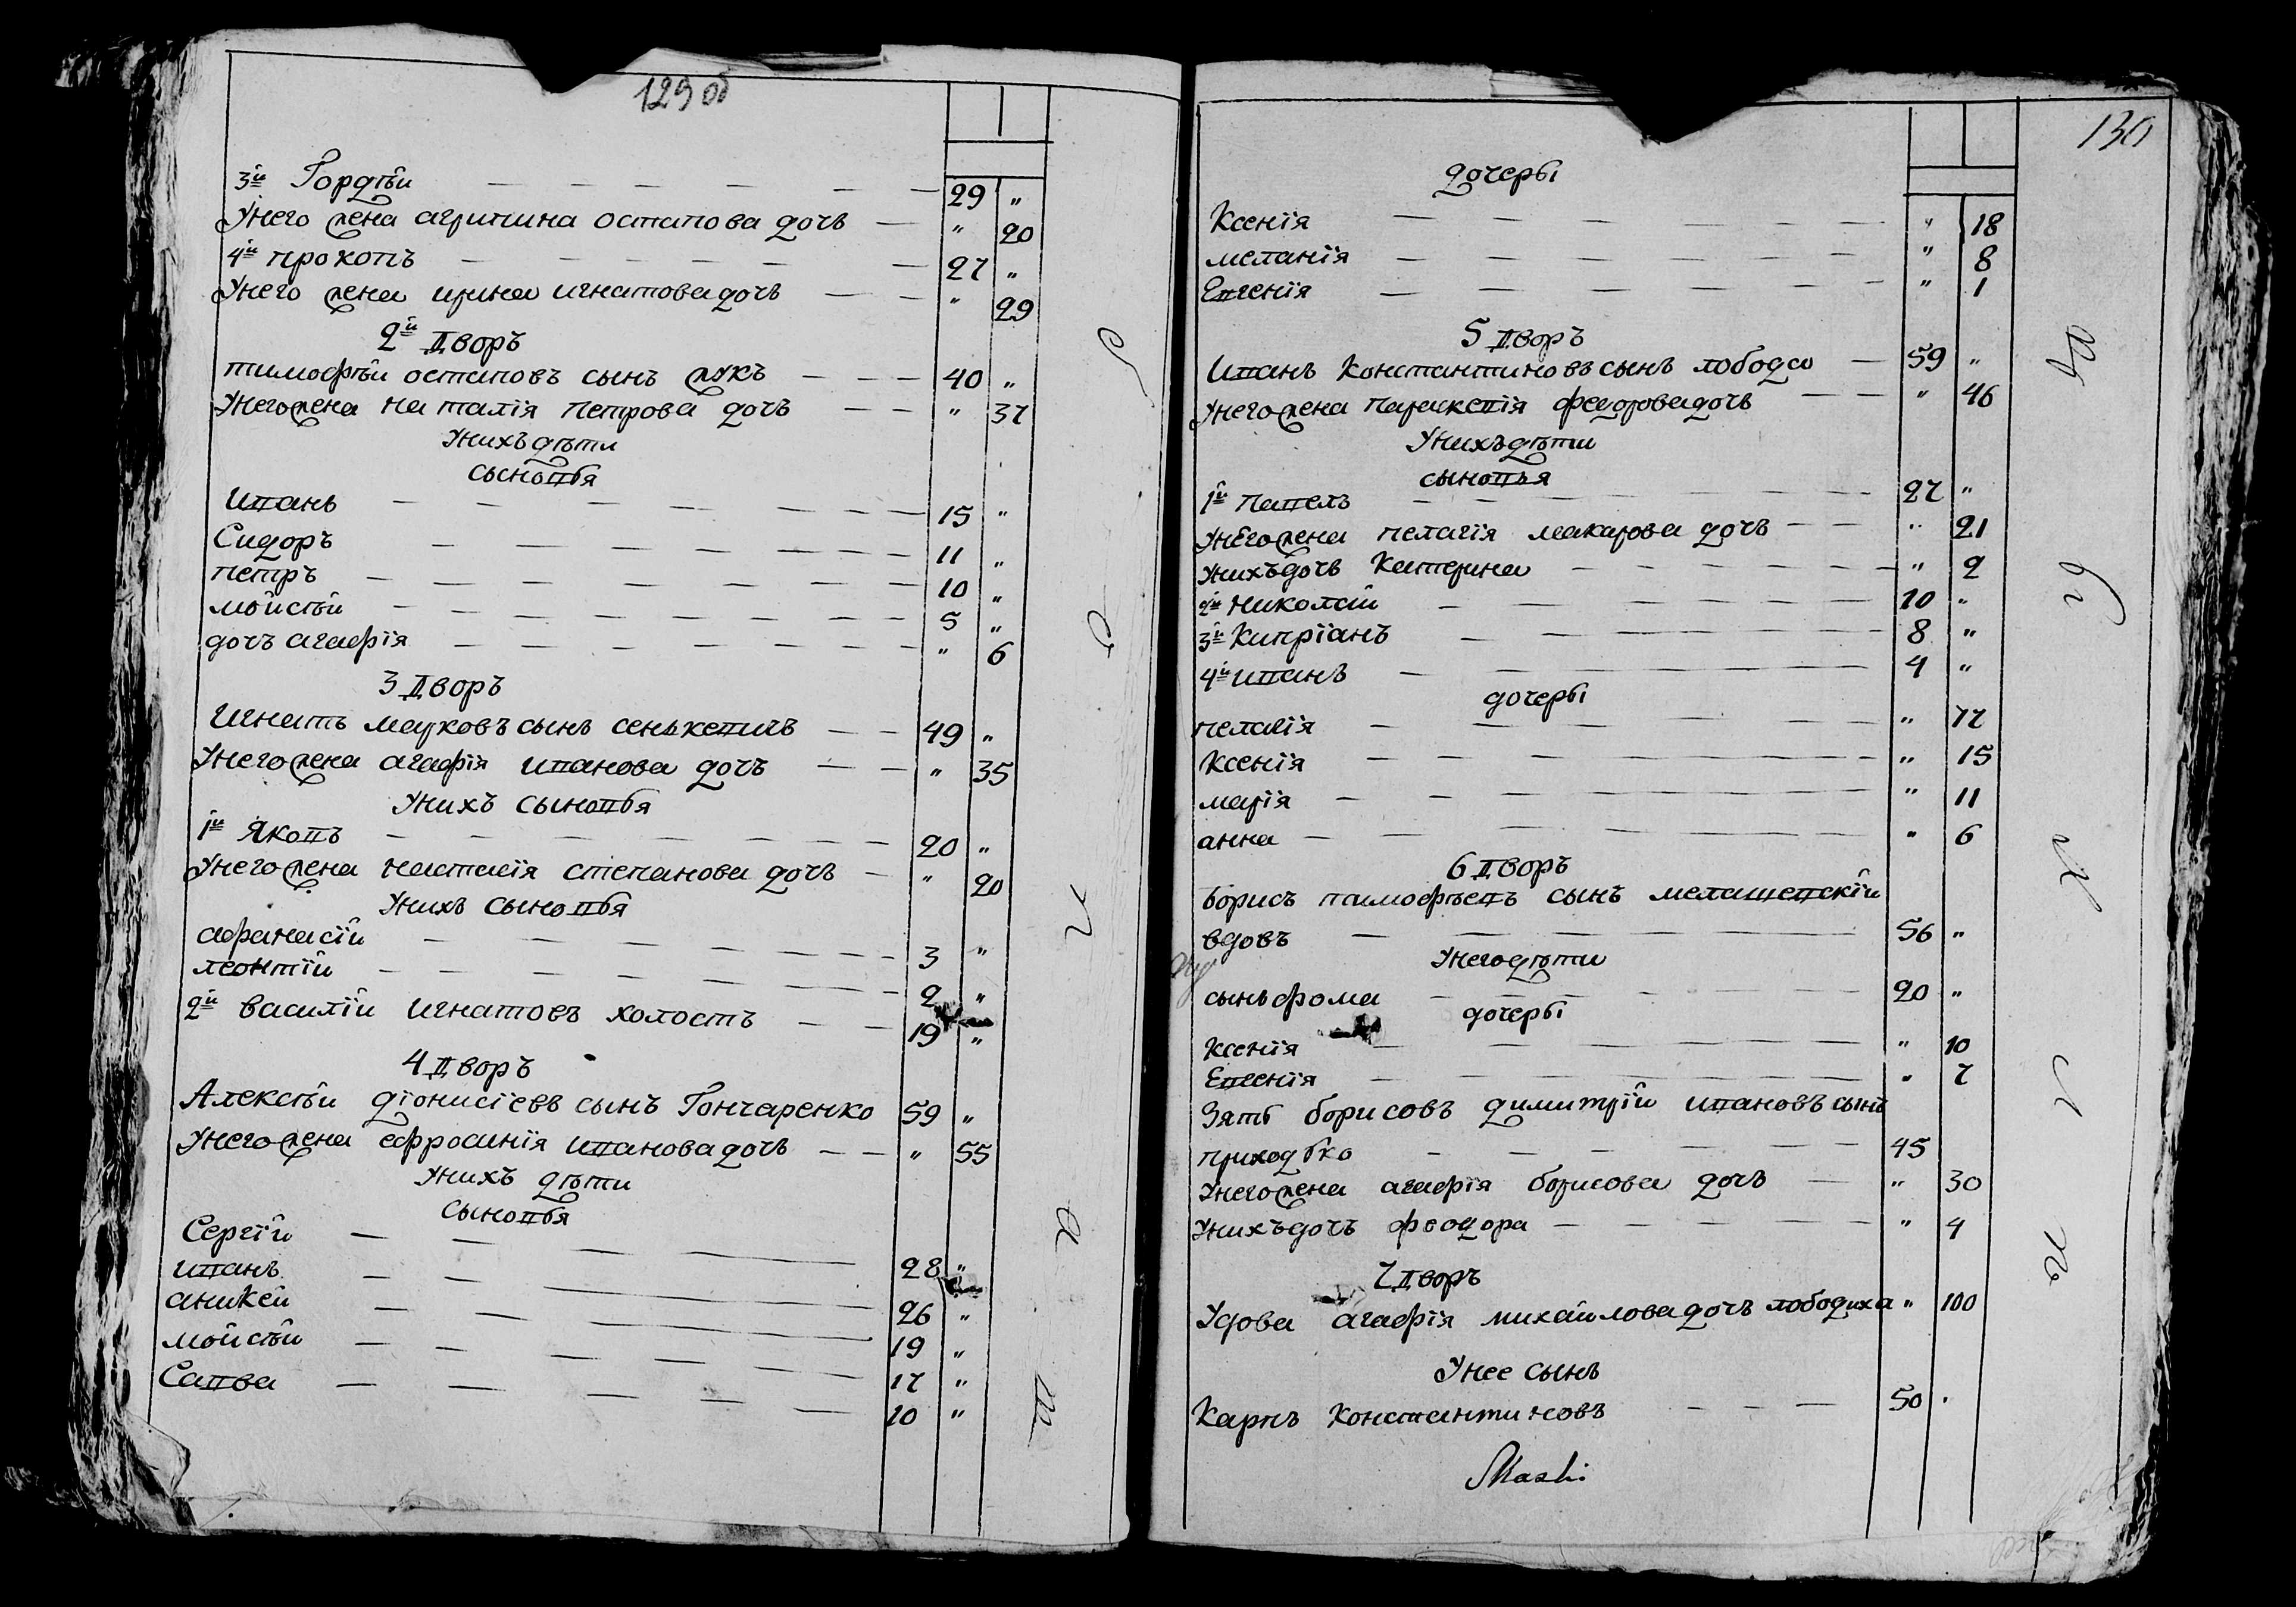 129 об
3й Гордѣй — 29 "
Унего жена агрипина остапова дочь — " 20
4й прокопъ — 27 "
Унего жена ирина игнатова дочь — " 29
2й Дворъ
тимофѣй остаповъ сынъ жукъ — 40 "
Унего жена наталія петрова дочь — " 37
Унихъ дѣти
сыновья
иванъ — 15 "
Сидоръ — 11 "
петръ — 10 "
мойсѣй — 5 "
дочь агафія — " 6
3 Дворъ
Игнатъ марковъ сынъ сенькевичъ — 49 "
Унего жена агафія иванова дочь — " 35
Унихъ сыновья
1й Яковъ — 20 "
Унего жена настасія степанова дочь — " 20
Унихъ сыновья
афанасій — 3 "
леонтій — 2 "
2й василій игнатовъ холостъ — 19 "
4 Дворъ
Алексѣй діонисіевъ сынъ Гончаренко 59 "
Унего жена ефросинія иванова дочь — " 55
Унихъ дѣти
Сыновья
Сергій — 28 "
иванъ — 26 "
аникей — 19 "
мойсѣй — 17 "
Савва — 10 "
130
дочери
Ксенія — " 18
меланія — " 8
Евгенія — " 1
5 Дворъ
Иванъ Константиновъ сынъ лобода — 59 "
Унего жена параскевія федорова дочь — " 46
Унихъ дѣти
сыновья
1й павелъ — 27 "
Унего жена пелагія макарова дочь — " 21
Унихъ дочь Катерина — " 2
2й николай — 10 "
3й Кипріанъ — 8 "
4й иванъ — 4 "
дочери
пелагія — " 17
Ксенія — " 15
марія — " 11
анна — " 6
6 Дворъ
борисъ тимофѣевъ сынъ мелашевскій
вдовъ — 56 "
Унего дѣти
сынъ фома — 20 "
дочери
Ксенія — " 10
Евгенія — " 7
Зять борисовъ димитрій ивановъ сынъ
приходько — 45
Унего жена агафія борисова дочь — " 30
Унихъ дочь феодора — " 4
7 Дворъ
Удова агафія михайлова дочь лободиха " 100
Унее сынъ
Карпъ Константиновъ — 50 "